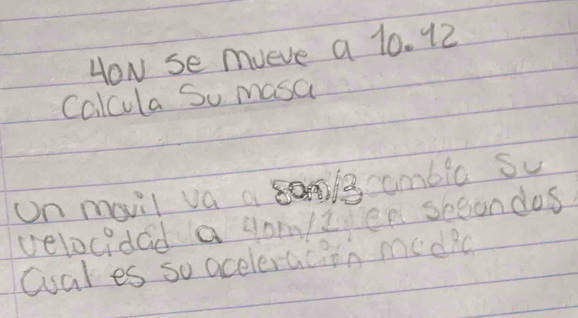 40N se mueve a 10.12
Calcula Su masa
Un movil va a cambia su
velocidad a segundos
Cual es so aceleración media